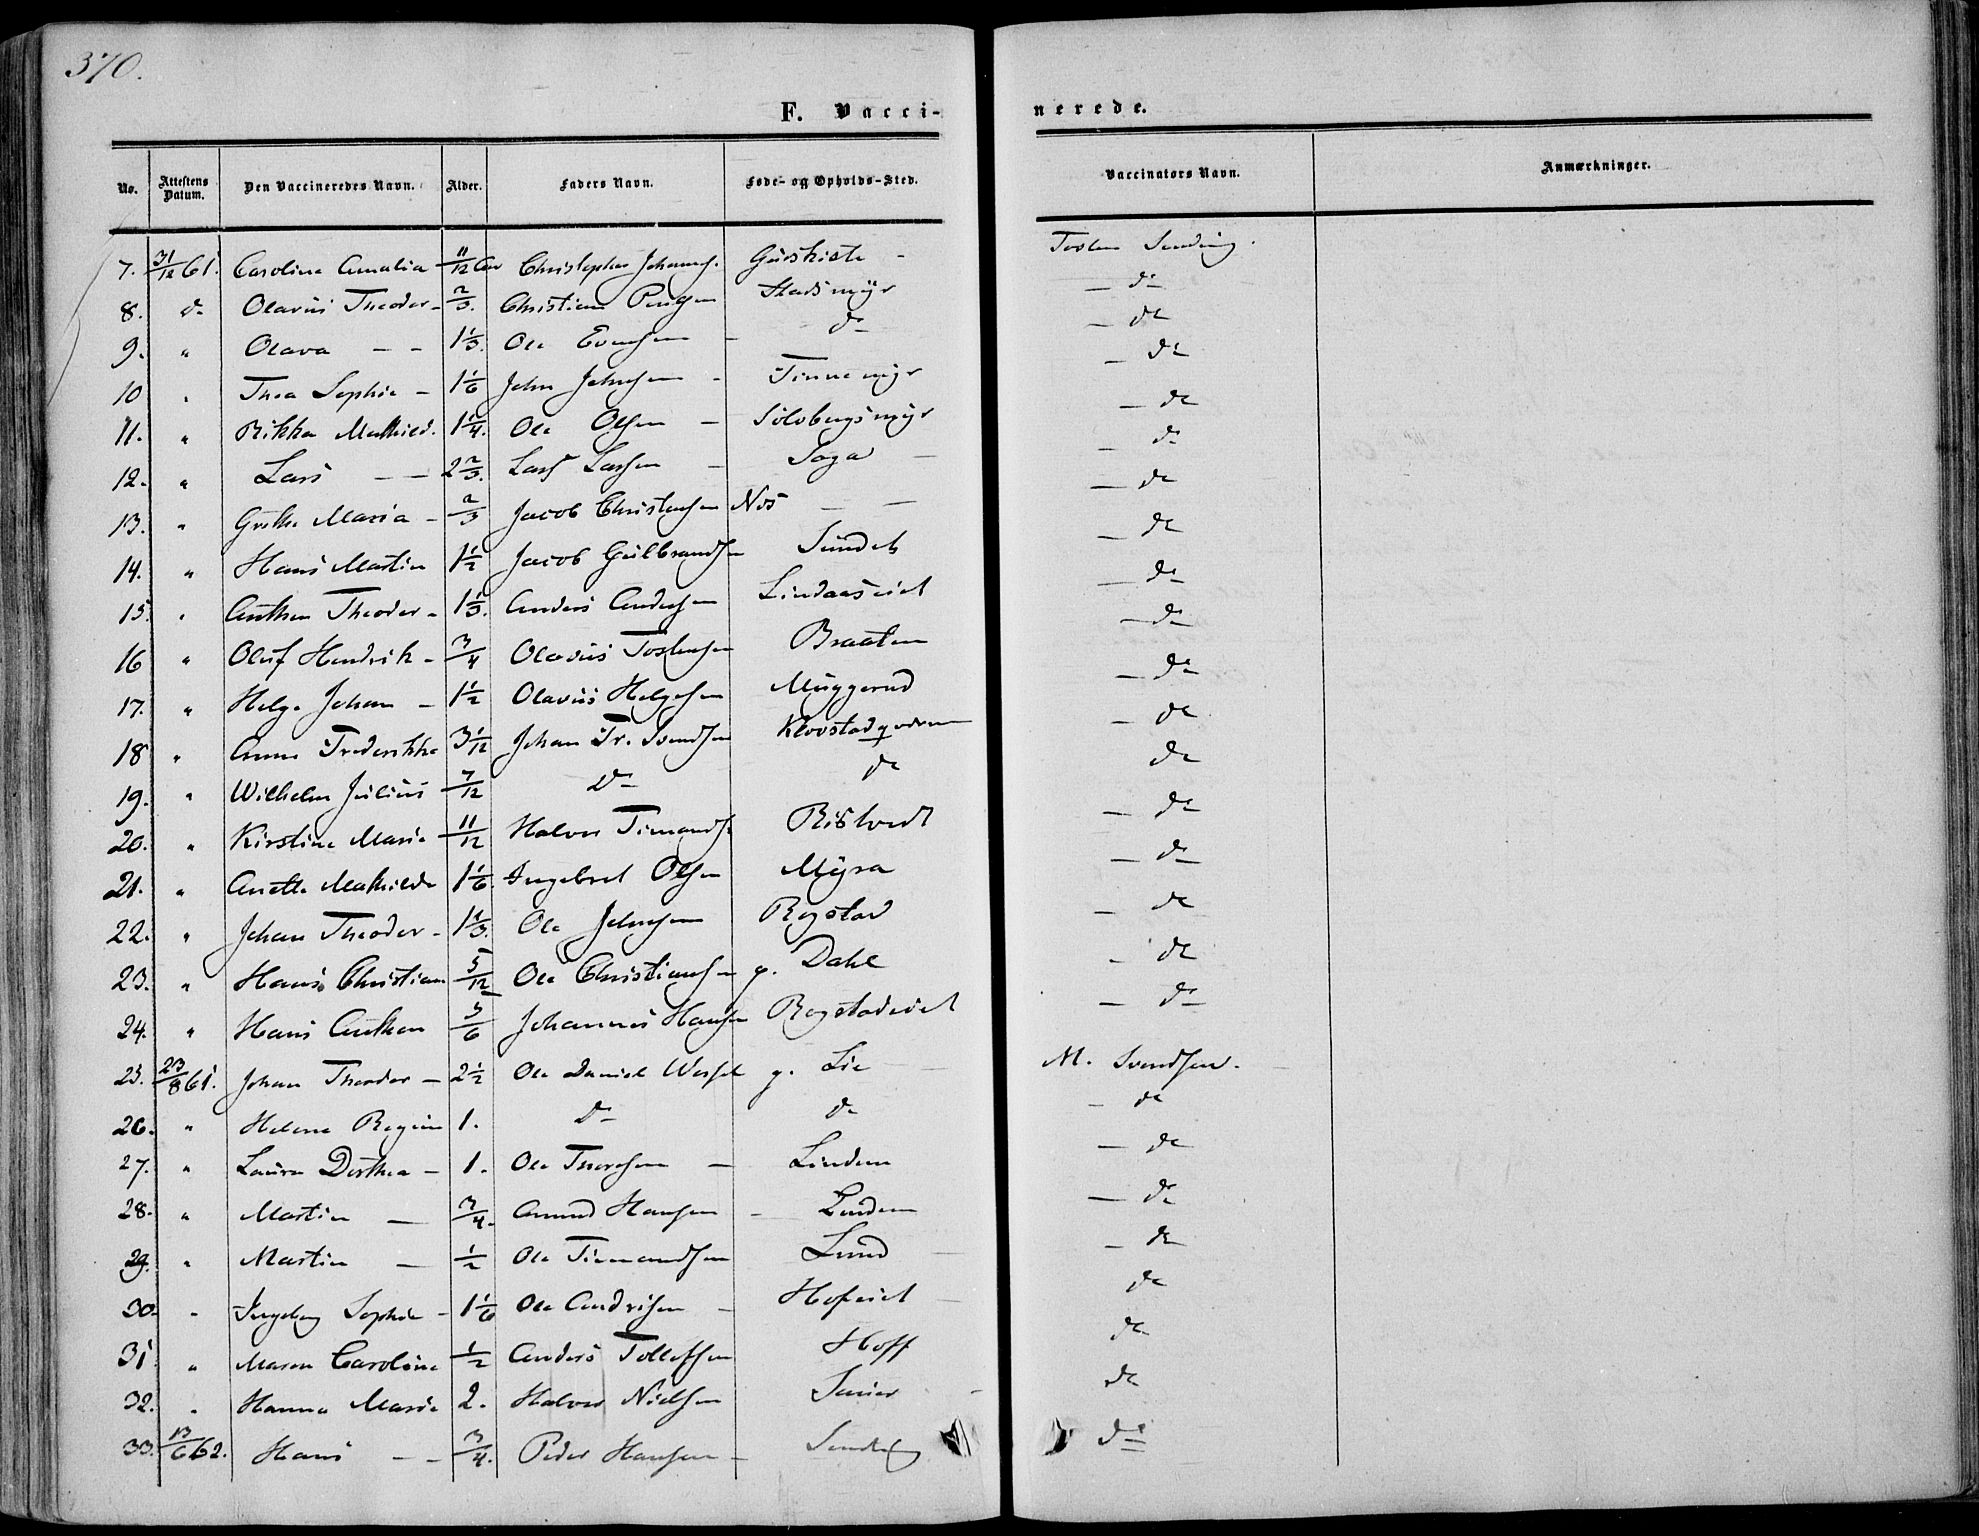 370.
F. Vacci-
nerede.
No. Attestens Datum. Den Vaccineredes Navn. Alder. Faders Navn. Føde- og Opholds-Sted. Vaccinators Navn. Anmærkninger.
7. 31/12 61. Caroline Amalia 11/12 Christopher Johannes.
8. d- Olavus Theodor - 2/3. Christian d-
9. " Olava - - 1 1/3. Ole Evensen - d- - do
10 " Thea Sophie - 1 1/6 John Johnsen - Tinnemyr - do
11. " Rikka Mathild. 1 1/4. Ole Olsen - Sølvbergsmyr - do
12. " Lars - - 2 2/3. Lars Larsen - Saga - - d-
13. " Grethe Maria - 2/3 Jacob Christensen Nos - - - do
14. " Hans Martin 1 1/2 Jacob Gulbrandsen Sundet - do
15. " Anthon Theodor - 1 1/3. Anders Andersen Lindaaseiet - do
16 " Oluf Hendrik - 3/4 Olavus Tostensen Braaten - do
17. " Helge Johan - 1 1/2 Olavus Helgesen Muggerud - do
18 " Anne Frederikke 3 1/12 Johan Fr. Svendsen - do
19. " Wilhelm Julius 7/12 Do do do
20. " Kirstine Marie 11/12 Halvor Timands. Ristvedt - do
21. " Anette Mathilde 1 1/6 Ingebret Olsen Myra - do
22. " Johan Theodor - 1 1/3. Ole Johnsen Rogstad - do
23. " Hans Christian 5/12 Ole Christiansen g. Dahl - do
24. " Hans Anthon 5/6 Johannes Hansen Rogstadeiet - do
25. 23/8 61. Johan Theodor - 2 1/2 Ole Daniel Wessel g. Lie - M. Svendsen.
26. " Helene Regine 1. Do do - do
27. " Laura Dorthea - 1. Ole Thoresen - Lindem - do
28. " Martin - 3/4. Amund Hansen - Lindem - do
29. " Martin - 1/2 Ole Timandsen Lund - - do
30. " Ingeborg Sophie - 1 1/6 Ole Andersen - Hofeiet - do
31. " Maren Caroline 1/2 Anders Tollefsen Hoff do
32. " Hanna Marie 2. Halvor Nielsen - do
33. 13/6 62. Hans - - 3/4. Peder Hansen - do